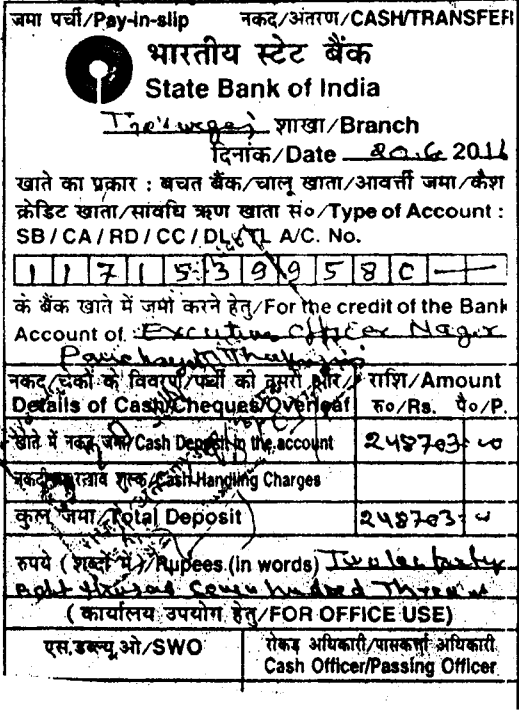 जमा पर्ची/Pay-in-slip नकद/अंतरण/CASH/TRANSFER
भारतीय स्टेट बैंक
State Bank of India
शाखा/Branch
दिनांक/Date 20.6 2016
खाते का प्रकार : बचत बैंक/चालू खाता/आवर्त्ती जमा/कैश
क्रेडिट खाता/सावधि ऋण खाता सं०/Type of Account :
SB/CA/RD/CC/DL/TL A/C. No.
1 1 7 1 5 3 9 9 5 8 0
के बैंक खाते में जमा करने हेतु/For the credit of the Bank
Account of Excutive Officer Nagar
Panchayat
नकद/चेकों के विवरण/पर्ची की दूसरी ओर/ राशि/Amount
Details of Cash/Cheques/Overleaf रु०/Rs. पै०/P.
खाते में नकद जमा/Cash Deposit in the account 248703=00
नकदी शुल्क/Cash Handling Charges
कुल जमा/Total Deposit 248703=00
रुपये (शब्दों में)/Rupees (in words) Two lac forty
Eght thousad seven hundred Three
(कार्यालय उपयोग हेतु/FOR OFFICE USE)
एस.डब्ल्यू.ओ/SWO रोकड़ अधिकारी/पासकर्त्ता अधिकारी
Cash Officer/Passing Officer